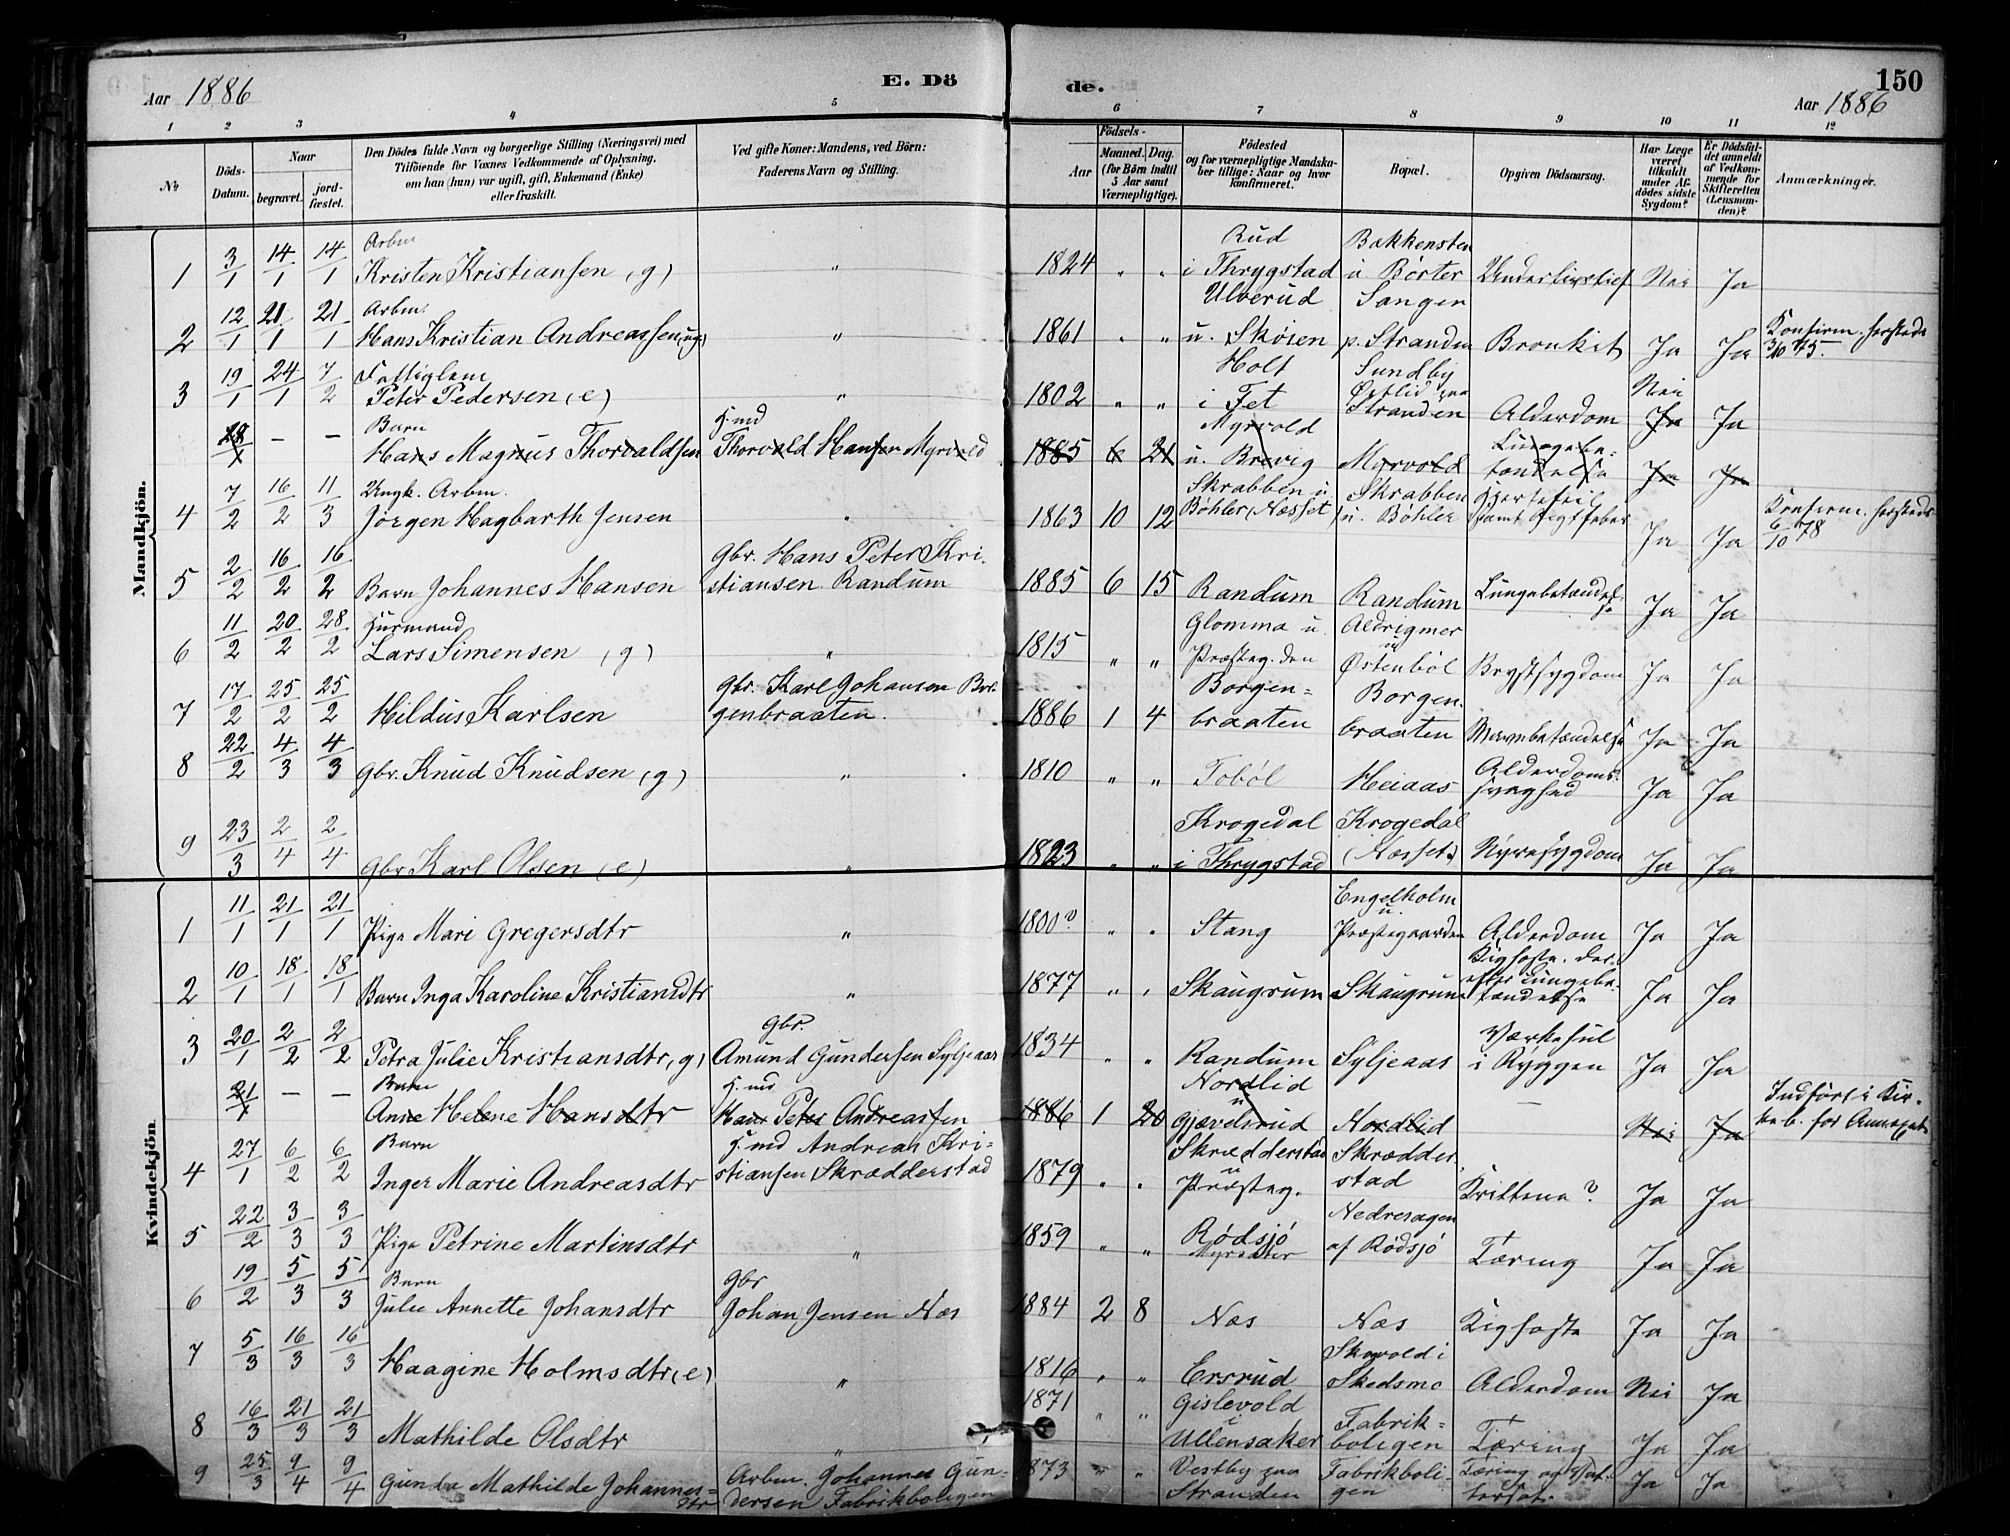 Aar 1886
E. Dö
de.
150
Aar 1886
1 2 3 4 5 6 7 8 9 10 11 12
№
Döds-Datum.
Naar
begravet.
jord-fæstet.
Den Dödes fulde Navn og borgerlige Stilling (Næringsvei) med
Tilföiende for Voxnes Vedkommende af Oplysning,
om han (hun) var ugift, gift, Enkemand (Enke)
eller fraskilt.
Ved gifte Koner: Mandens, ved Börn:
Faderens Navn og Stilling.
Födsels-
Aar
Maaned. Dag.
(for Börn indtil
5 Aar samt
Værnepligtige).
Födested
og for værnepligtige Mandska-
ber tillige: Naar og hvor
konfirmeret.
Bopæl.
Opgiven Dödsaarsag.
Har Læge
været
tilkaldt
under Af-
dödes sidste
Sygdom?
Er Dödsfal-
det anmeldt
af Vedkom-
mende for
Skifteretten
(Lensman-
den)?
Anmærkninger.
Mandkjön.
1 3/1 14/1 14/1 Arbm Kristen Kristiansen (g) " 1824 " " Rud i Thrygstad Bakkensten u Börter Underlivstief Nei Ja
2 12/1 21/1 21/1 Arbm. Hans Kristian Andreassen (ug) " 1861 " " Ulverud u. Skøien Sangen p. Stranden Bronkit Ja Ja Konfirm. herstede 3/10 75.
3 19/1 24/1 7/2 Fattiglem Peter Pedersen (e) " 1802 " " Holt i Fet Sundby Østlid paa Stranden Alderdom Nei Ja Ja
28/1 – – Barn Hans Magnus Thorvaldsen H.md Thorvald Hansen Myrvold 1885 6 21 Myrvold u. Brevig Myrvold Lungebe-tændelse Ja Ja
4 7/2 16/2 11/3 Ungk. Arbm. Jørgen Hagbarth Jensen " 1863 10 12 Skrabben u Bøhler (Næsset) Skrabben u. Bøhler Hjertefeil samt Gigtfeber Ja Ja Konfirm. herstede 6/10 78
5 2/2 16/2 16/2 Barn Johannes Hansen Gbr. Hans Peter Kri-stiansen Randum 1885 6 15 Randum Randum Lungebetændel-se Ja Ja
6 11/2 20/2 28/2 Husmand Lars Simensen (g) " 1815 " " Glomma u. Præsteg. Aldrigmer u Østenbøl Brystsygdom Ja Ja
7 17/2 25/2 25/2 Hildus Karlsen Gbr. Karl Johansen Bor-genbraaten. 1886 1 4 Borgen=braaten Borgen.braaten Mavebetændelse Ja Ja
8 22/2 4/3 4/3 Gbr. Knud Knudsen (g) " 1810 " " Tobøl Heiaas Alderdoms-svaghed Ja Ja
9 23/3 2/4 2/4 Gbr Karl Olsen (e) " 1823 " " Krogedal i Thrygstad Krogedal (Næsset) Nyresygdom Ja Ja
Kvindekjön.
1 11/1 21/1 21/1 Pige Mari Gregersdtr " 1800? " " Stang Engelholm u. Præstegaarden Alderdom Ja Ja
2 10/1 18/1 18/1 Barn Inga Karoline Kristiandtr " 1877 " " Skaugrum Skaugrum Kighoste. der-efter Lungebe-tændelse Ja Ja
3 20/1 2/2 2/2 Petra Julie Kristiansdtr, g) Gbr. Amund Gundersen Syljeaas 1834 " " Randum Syljeaas Værkesul i Ryggen Ja Ja
21/1 – – Barn Anne Helene Hansdtr H.md Hans Peter Andreassen 1886 1 20 Nordlid u Gjævelsrud Nordlid – Nei Ja Indført i Kir-keb. for
4 27/1 6/2 6/2 Barn Inger Marie Andreasdtr H.md Andreas Kri-stiansen Skrædderstad 1879 " " Skrædderstad u Præsteg. Skrædder.stad Krittene? Ja Ja
5 22/2 3/3 3/3 Pige Petrine Martinsdtr " 1859 " " Rødsjø Nedresagen af Rødsjø Tæring Ja Ja
6 19/2 5/3 5/3 Barn Julie Annette Johansdtr Gbr Johan Jensen Næs 1884 2 8 Næs Næs Kighoste Ja Ja
7 5/3 16/3 16/3 Haagine Holmsdtr (e) " 1816 " " Ersrud Skovold i Skedsmo Alderdom Nei Ja
8 16/3 21/3 21/3 Mathilde Olsdtr " 1871 " " Gislevold i Ullensaker Fabrik=boligen Tæring Ja Ja
9 25/3 9/4 9/4 Gunda Mathilde Johannes=dtr Arbm. Johannes Gun-dersen Fabrikboligen 1873 " " Vestby paa Stranden Fabrikboli-gen Tæring Ja Ja